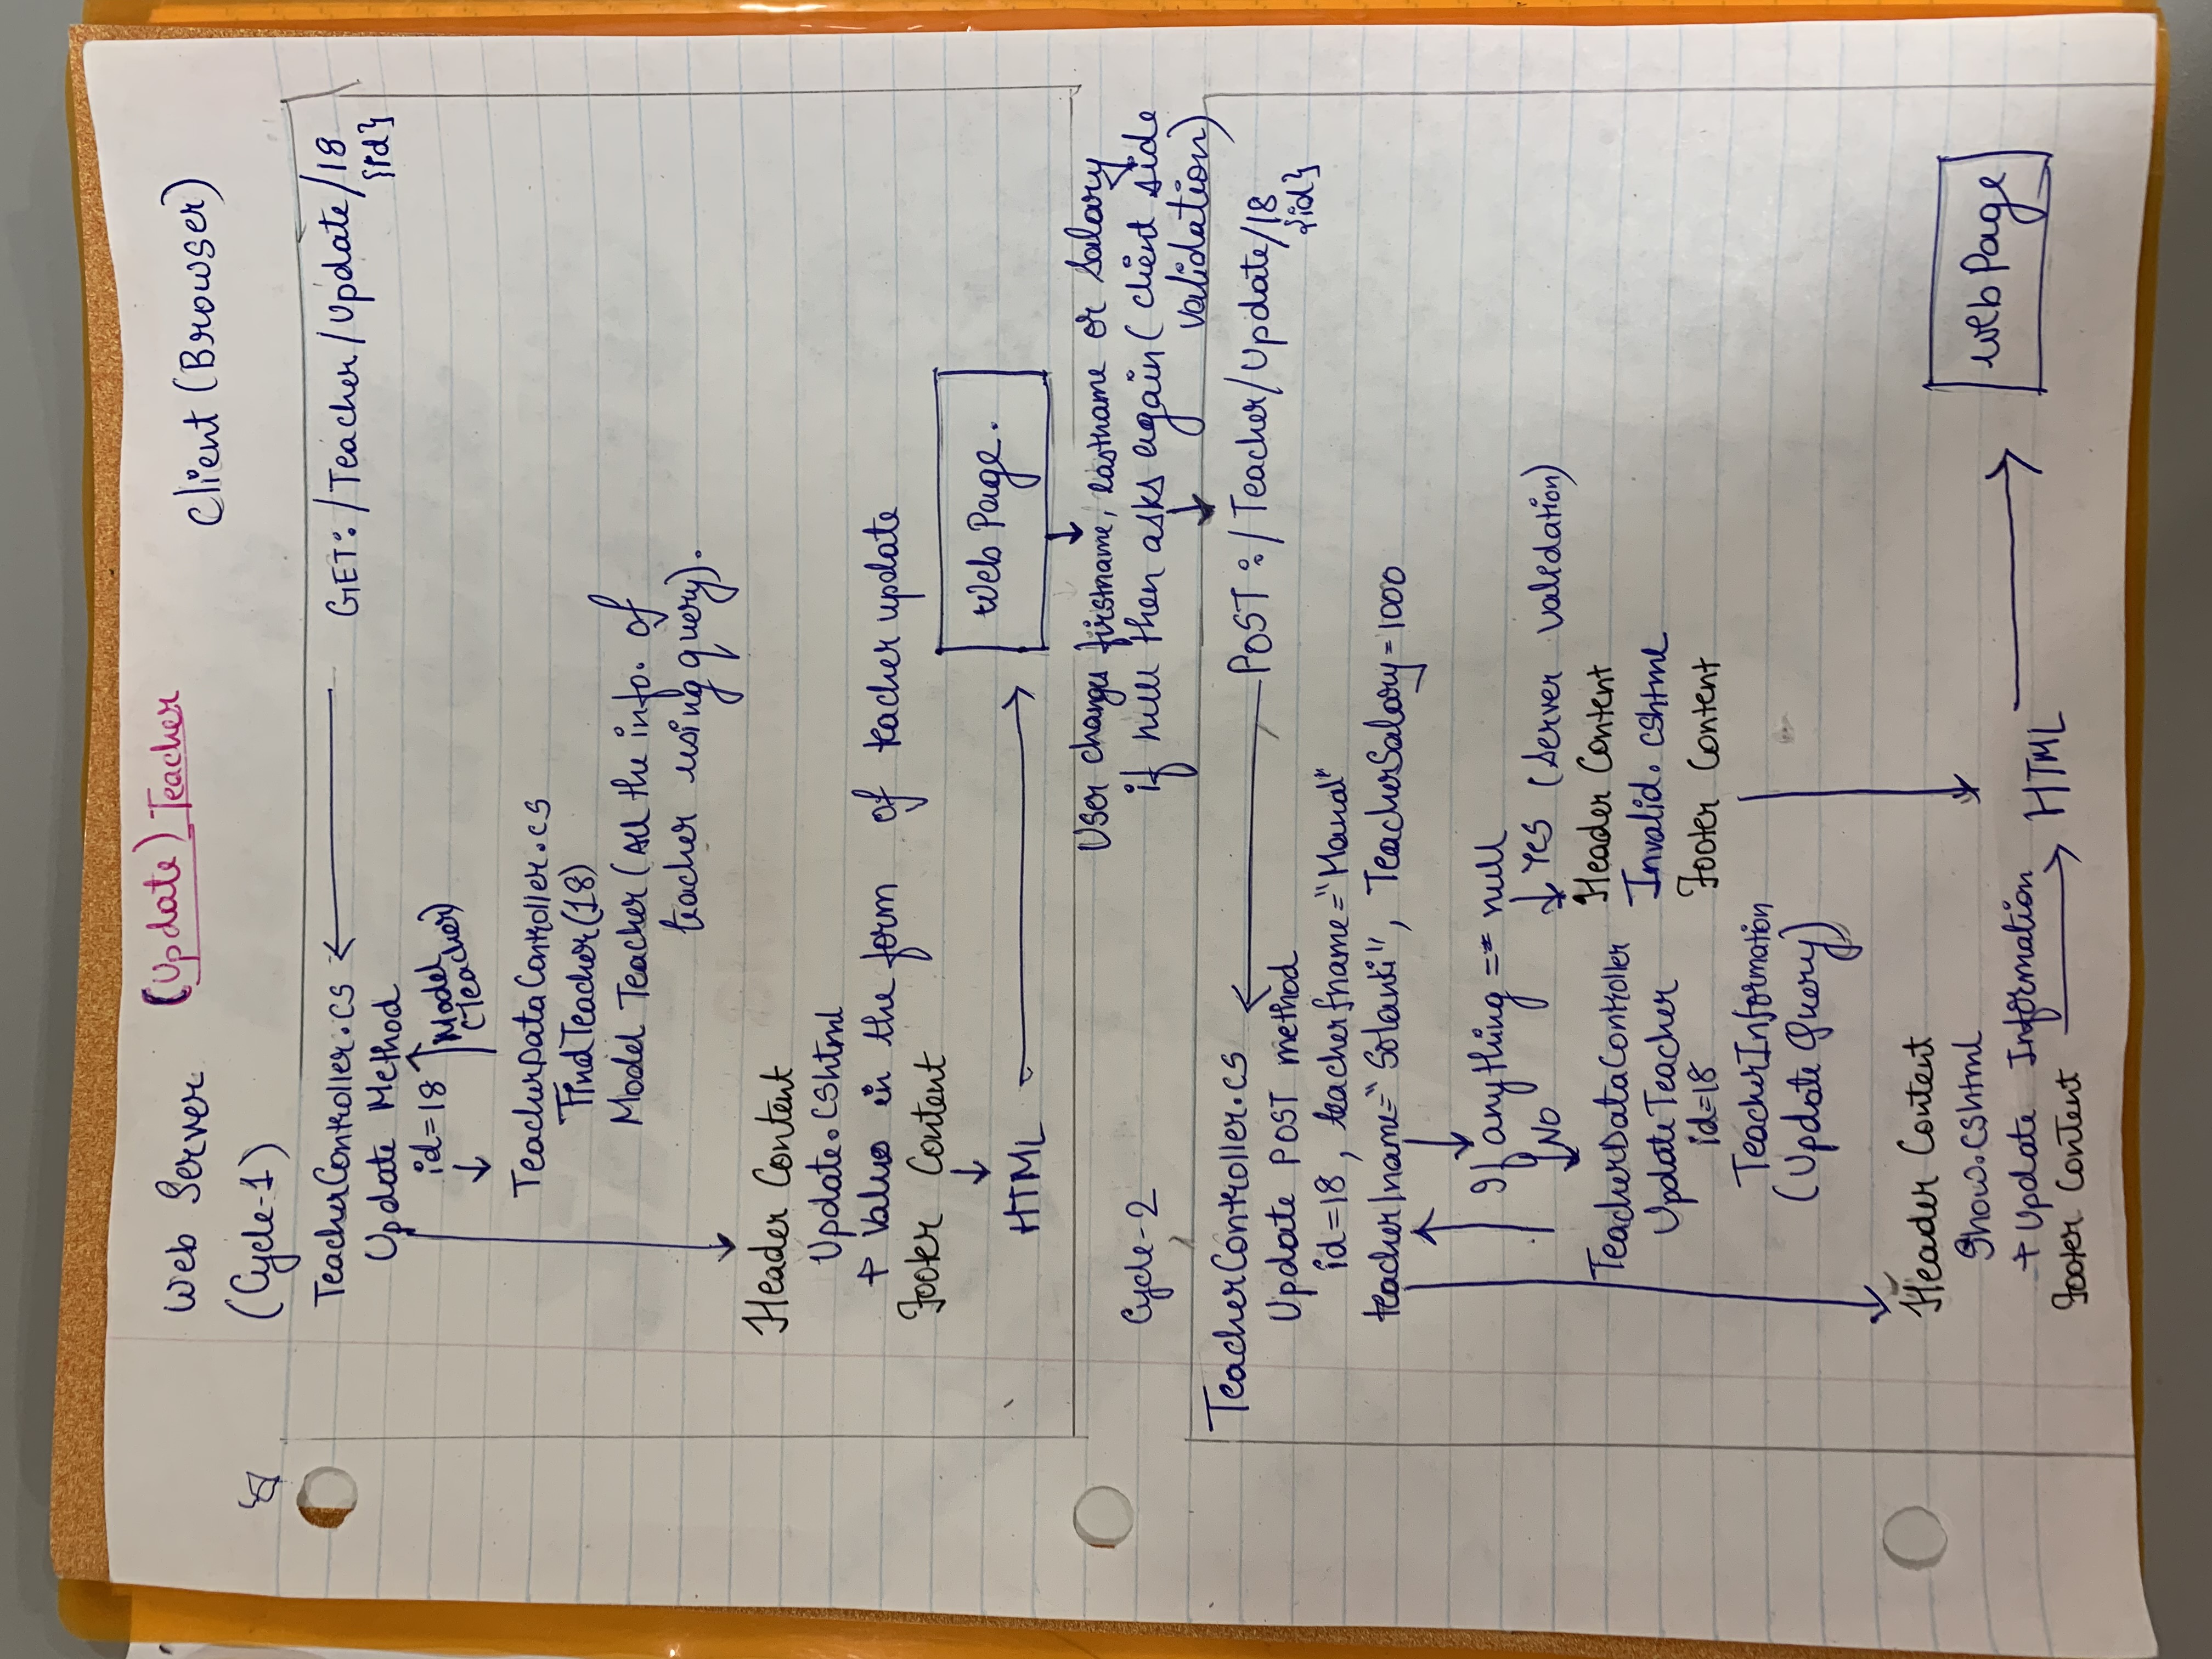 (Update) Teacher
Web Server
Client (Browser)
(Cycle-1)
TeacherController.cs
GET:/Teacher/Update/18
{id}
Update Method
id=18
Model
(Teacher)
TeacherDataController.cs
FindTeacher(18)
Model Teacher (All the info. of
teacher using query).
Header Content
Update.cshtml
+ Value in the form of teacher update
Footer Content
HTML
Web Page.
User changes firstname, lastname or salary
if null then asks again (client side
validation)
Cycle-2
TeacherController.cs
POST:/Teacher/Update/18
{id}
Update POST method
id=18, teacherfname="Manal"
teacherlname="Solanki", TeacherSalary=1000
If anything == null
NO
YES (Server validation)
TeacherDataController
UpdateTeacher
id=18
TeacherInformation
(Update Query)
Header Content
Invalid.cshtml
Footer Content
Header Content
Show.cshtml
+ Update Information
Footer Content
HTML
Web Page